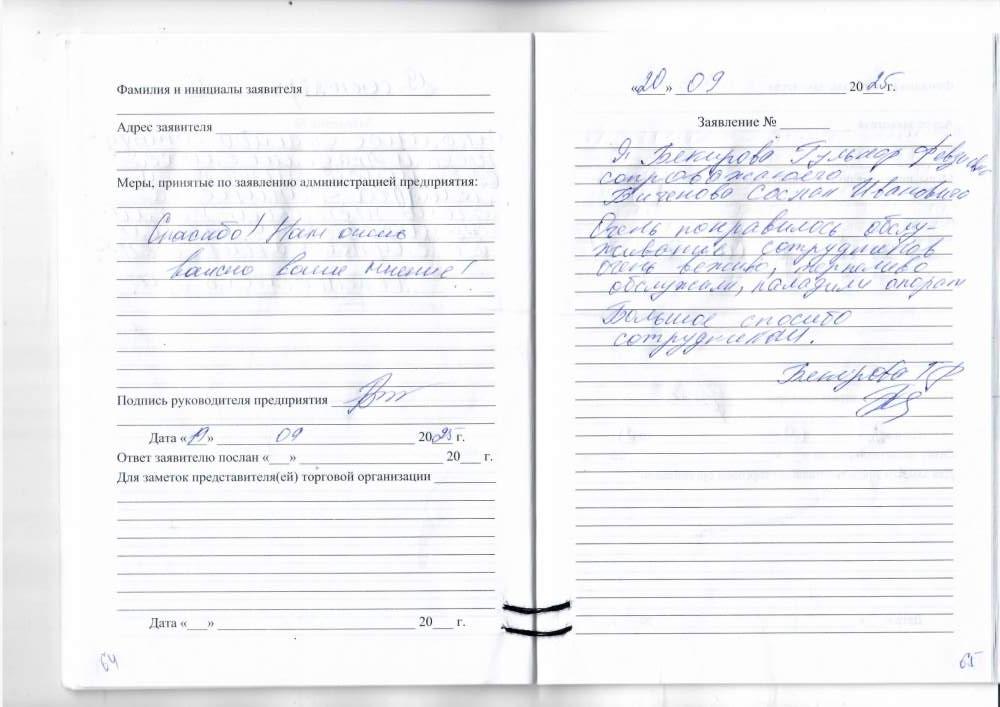 Фамилия и инициалы заявителя
Адрес заявителя
Меры, принятые по заявлению администрацией предприятия:
Спасибо! Нам очень
важно ваше мнение!
Подпись руководителя предприятия
Дата «19» 09 2025 г.
Ответ заявителю послан «___» 20___ г.
Для заметок представителя(ей) торговой организации
Дата «___» 20___ г.
64
«20» 09 2025г.
Заявление №
Я Бекирова Гульнар
сопровождающего
Ивановича
Очень понравилось обслу-
живание сотрудников
очень вежливо, терпеливо
обслужили, наладили апарат
Большое спосибо
сотрудникам.
Бекирова Г Ф
65